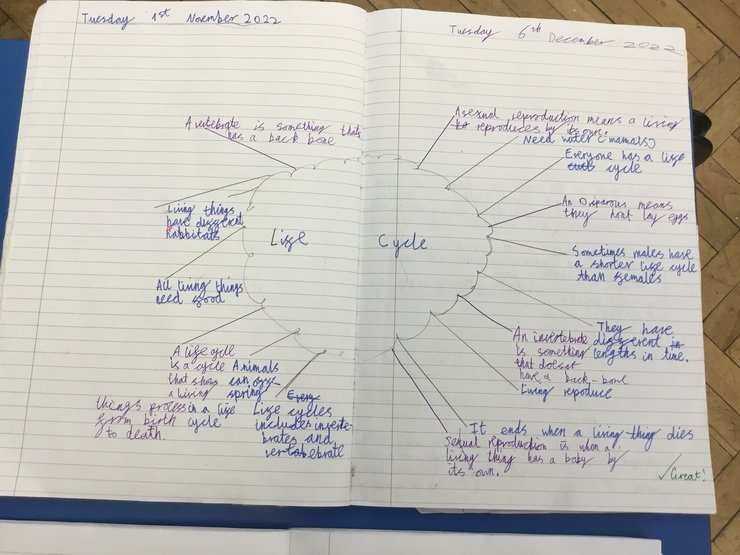 Tuesday 1st November 2022
A vertebrate is something that
has a back bone
Living things
have different
habbitats
All living things
need food
A life cycll
is a cycle
that shows
a living
things process
from birth
to death.
Animals
can
spring
in a life
cycle
Life cycles
includes inverte-
brates and
vertabrate
Life Cycle
Tuesday 6th December 2022
Asexual reproduction means a living
reproduces by its own.
Need water (mamals)
Everyone has a life
cycle
An Oviparous means
they dont lay eggs
Sometimes males have
a shorter life cycle
than females
They have
different
lengths in time.
An invertebrate
is something
that doesot
have a back-bone
reproduce
It ends when a living thing dies
Sexual reproduction is when a
living thing has a baby by
its own.
Great!